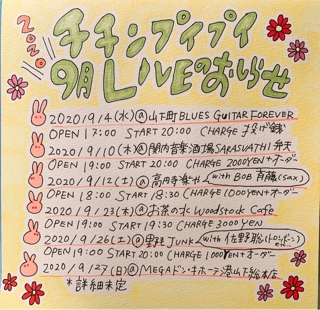 2020
チチンプイプイ
9月LIVEのおしらせ
2020/9/4(水)@山下町BLUES GUITAR FOREVER
OPEN 17:00 START 20:00 CHARGE 投げ銭
2020/9/10(木)@関内音楽酒場SARASVATHI弁天
OPEN 19:00 START 20:00 CHARGE 2000YEN+オーダー
2020/9/12(土)@高円寺楽 with BOB斉藤(sax)
OPEN 18:00 START 18:30 CHARGE 1000YEN+オーダー
2020/9/23(木)@お茶の水 Woodstock Cafe
OPEN 19:00 START 19:30 CHARGE 3000YEN
2020/9/26(土)@野毛JUNK with 佐野聡(トロンボーン) etc.
OPEN 19:00 START 20:00 CHARGE 1000YEN+オーダー
2020/9/27(日)@MEGAドン・キホーテ港山下総本店
*詳細未定